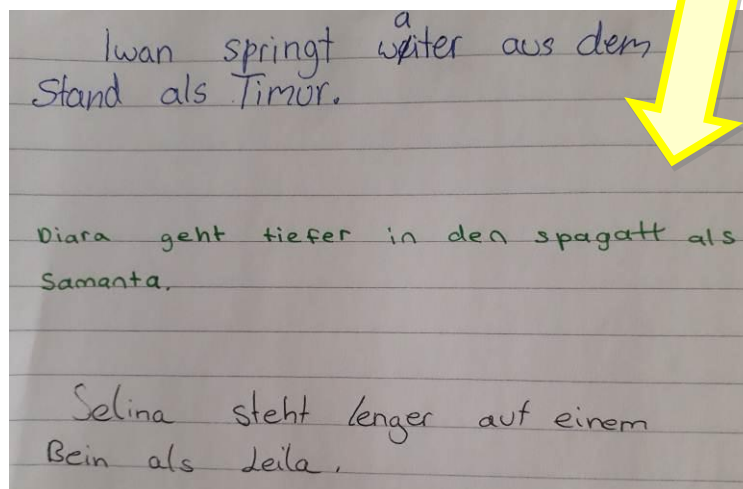 Iwan springt waiter aus dem
Stand als Timur.
Diara geht tiefer in den spagatt als
Samanta.
Selina steht lenger auf einem
Bein als Leila.